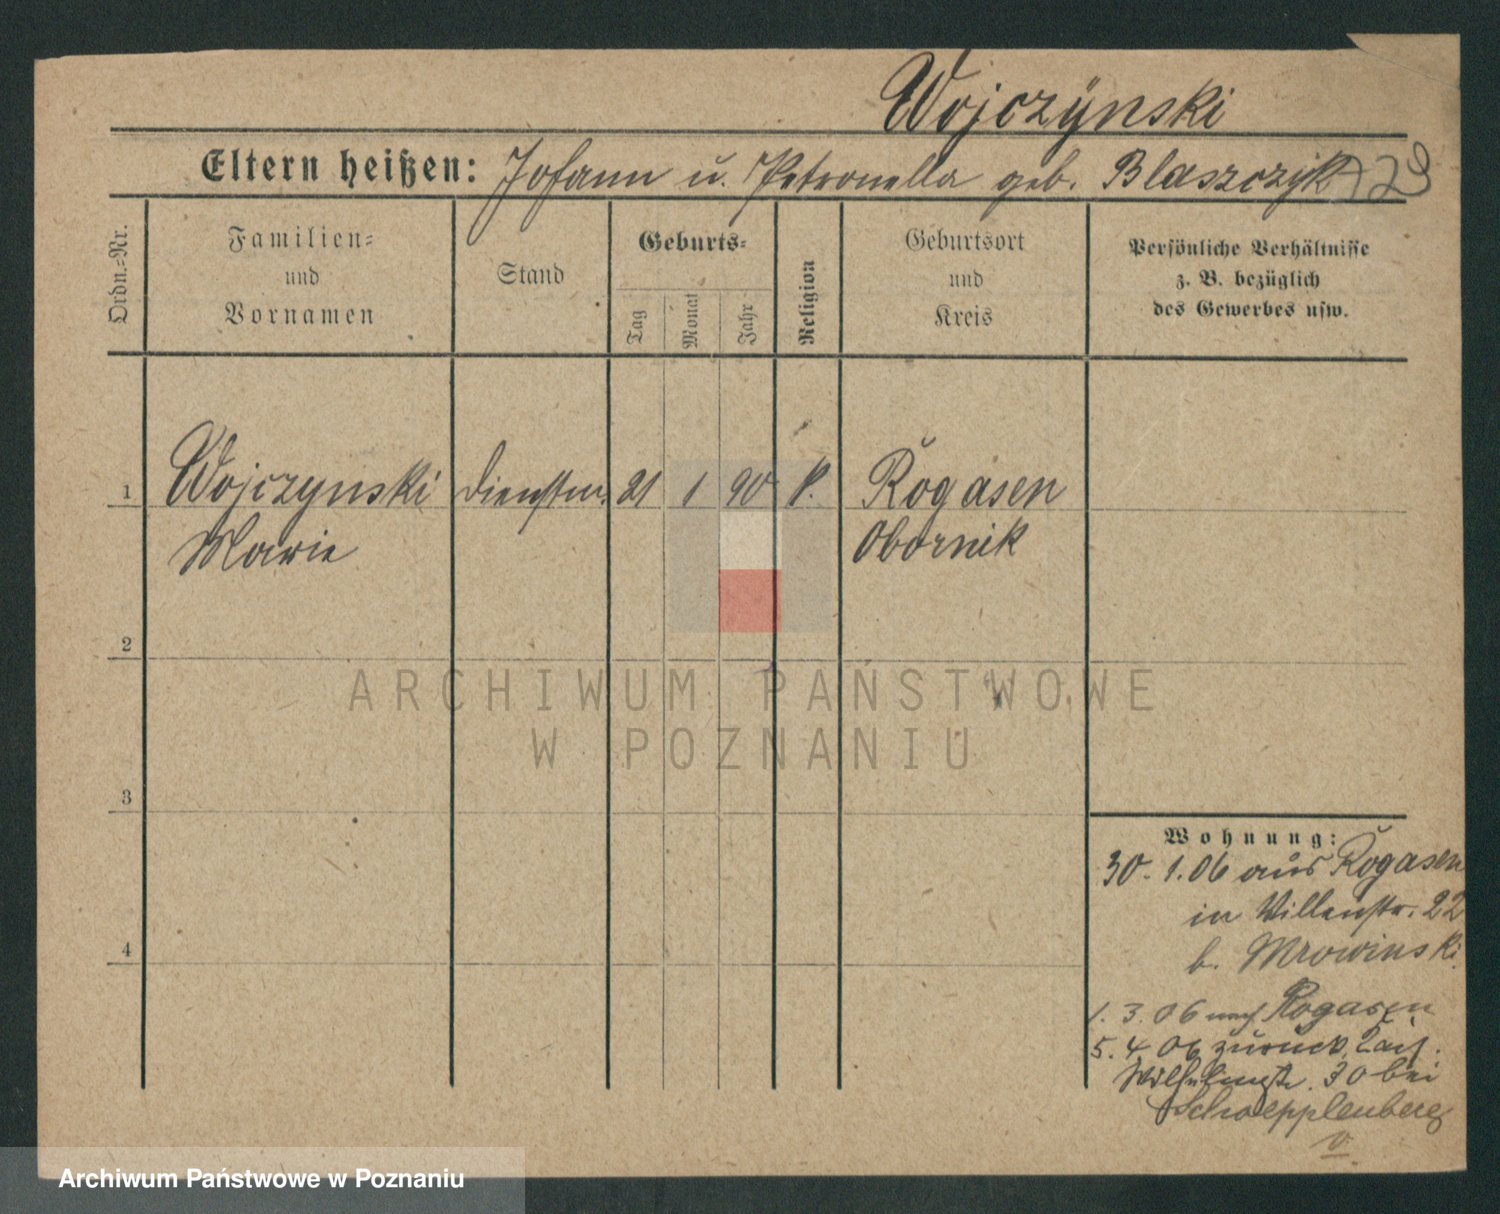 Wojczÿnski
Eltern heißen: Johann u. Petronella geb. Blaszczÿk 729
Ordn.-Nr.
Familien-
und
Vornamen
Stand
Geburts-
Tag
Monat
Jahr
Religion
Geburtsort
und
Kreis
Persönliche Verhältnisse
z. B. bezüglich
des Gewerbes usw.
1 Wojczynski Dienstm. 21 1 90 k. Rogasen
Marie Obornik
2
ARCHIWUM PAŃSTWOWE
W POZNANIU
3
Wohnung:
30. 1. 06 aus Rogasen
in Villenstr. 22
b. Mrowinski
4
1. 3. 06 nach Rogasen
5. 4 06 zurück
Wilhelmstr. 30 bei
Schoepplenberg
v
Archiwum Państwowe w Poznaniu